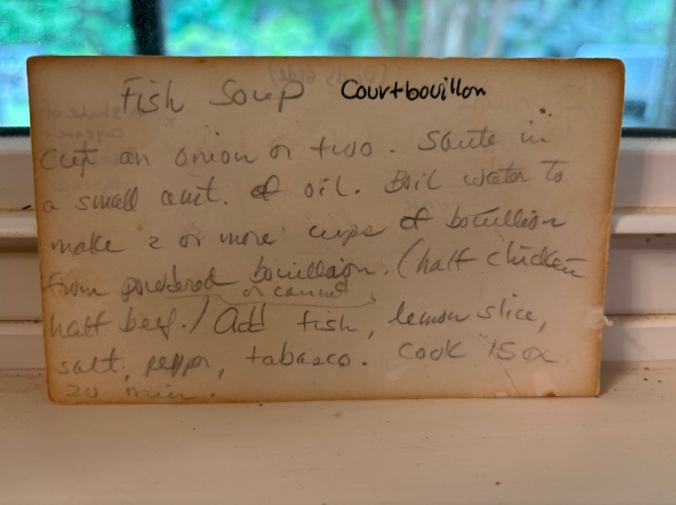 Fish Soup Courtbouillon
Cut an onion or two. Saute in
a small amt. of oil. Boil water to
make 2 or more cups of bouillion
from powdered bouillion. (half chicken
or canned
half beef.) Add fish, lemon slice,
salt, pepper, tabasco. Cook 15 or
20 min.